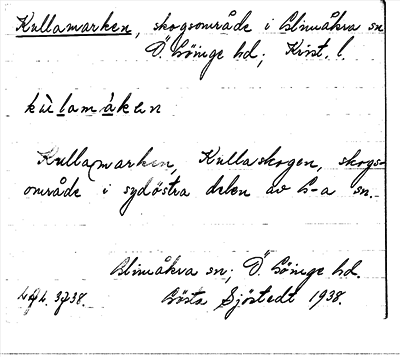 Kullamarken, skogsområde i Glimåkra sn
Ö. Göinge hd; Krist. l.
kùlamàken
Kulla(marken, Kullaskogen, skogs-
område i sydöstra delen av G-a sn.
Glimåkra sn; Ö. Göinge hd.
Gösta Sjöstedt 1938.